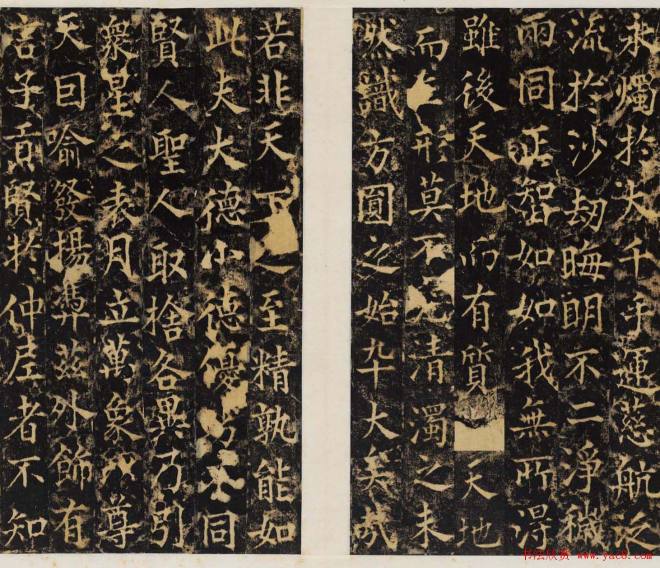 永燭於大千手運慈航泛
流於沙劫晦明不二淨穢
兩同正智如如我無所得
雖後天地而有質 天地
而 形莫不 清濁之未
然識方圓之始卆大矣哉
若非天下之至精孰能如
此夫大德小德優 不同
賢人聖人取捨各異乃引
衆星之表月立萬象 尊
天曰喻發揚 茲外飾有
言子貢賢於仲尼者不知
书法欣赏 www.yac8.com